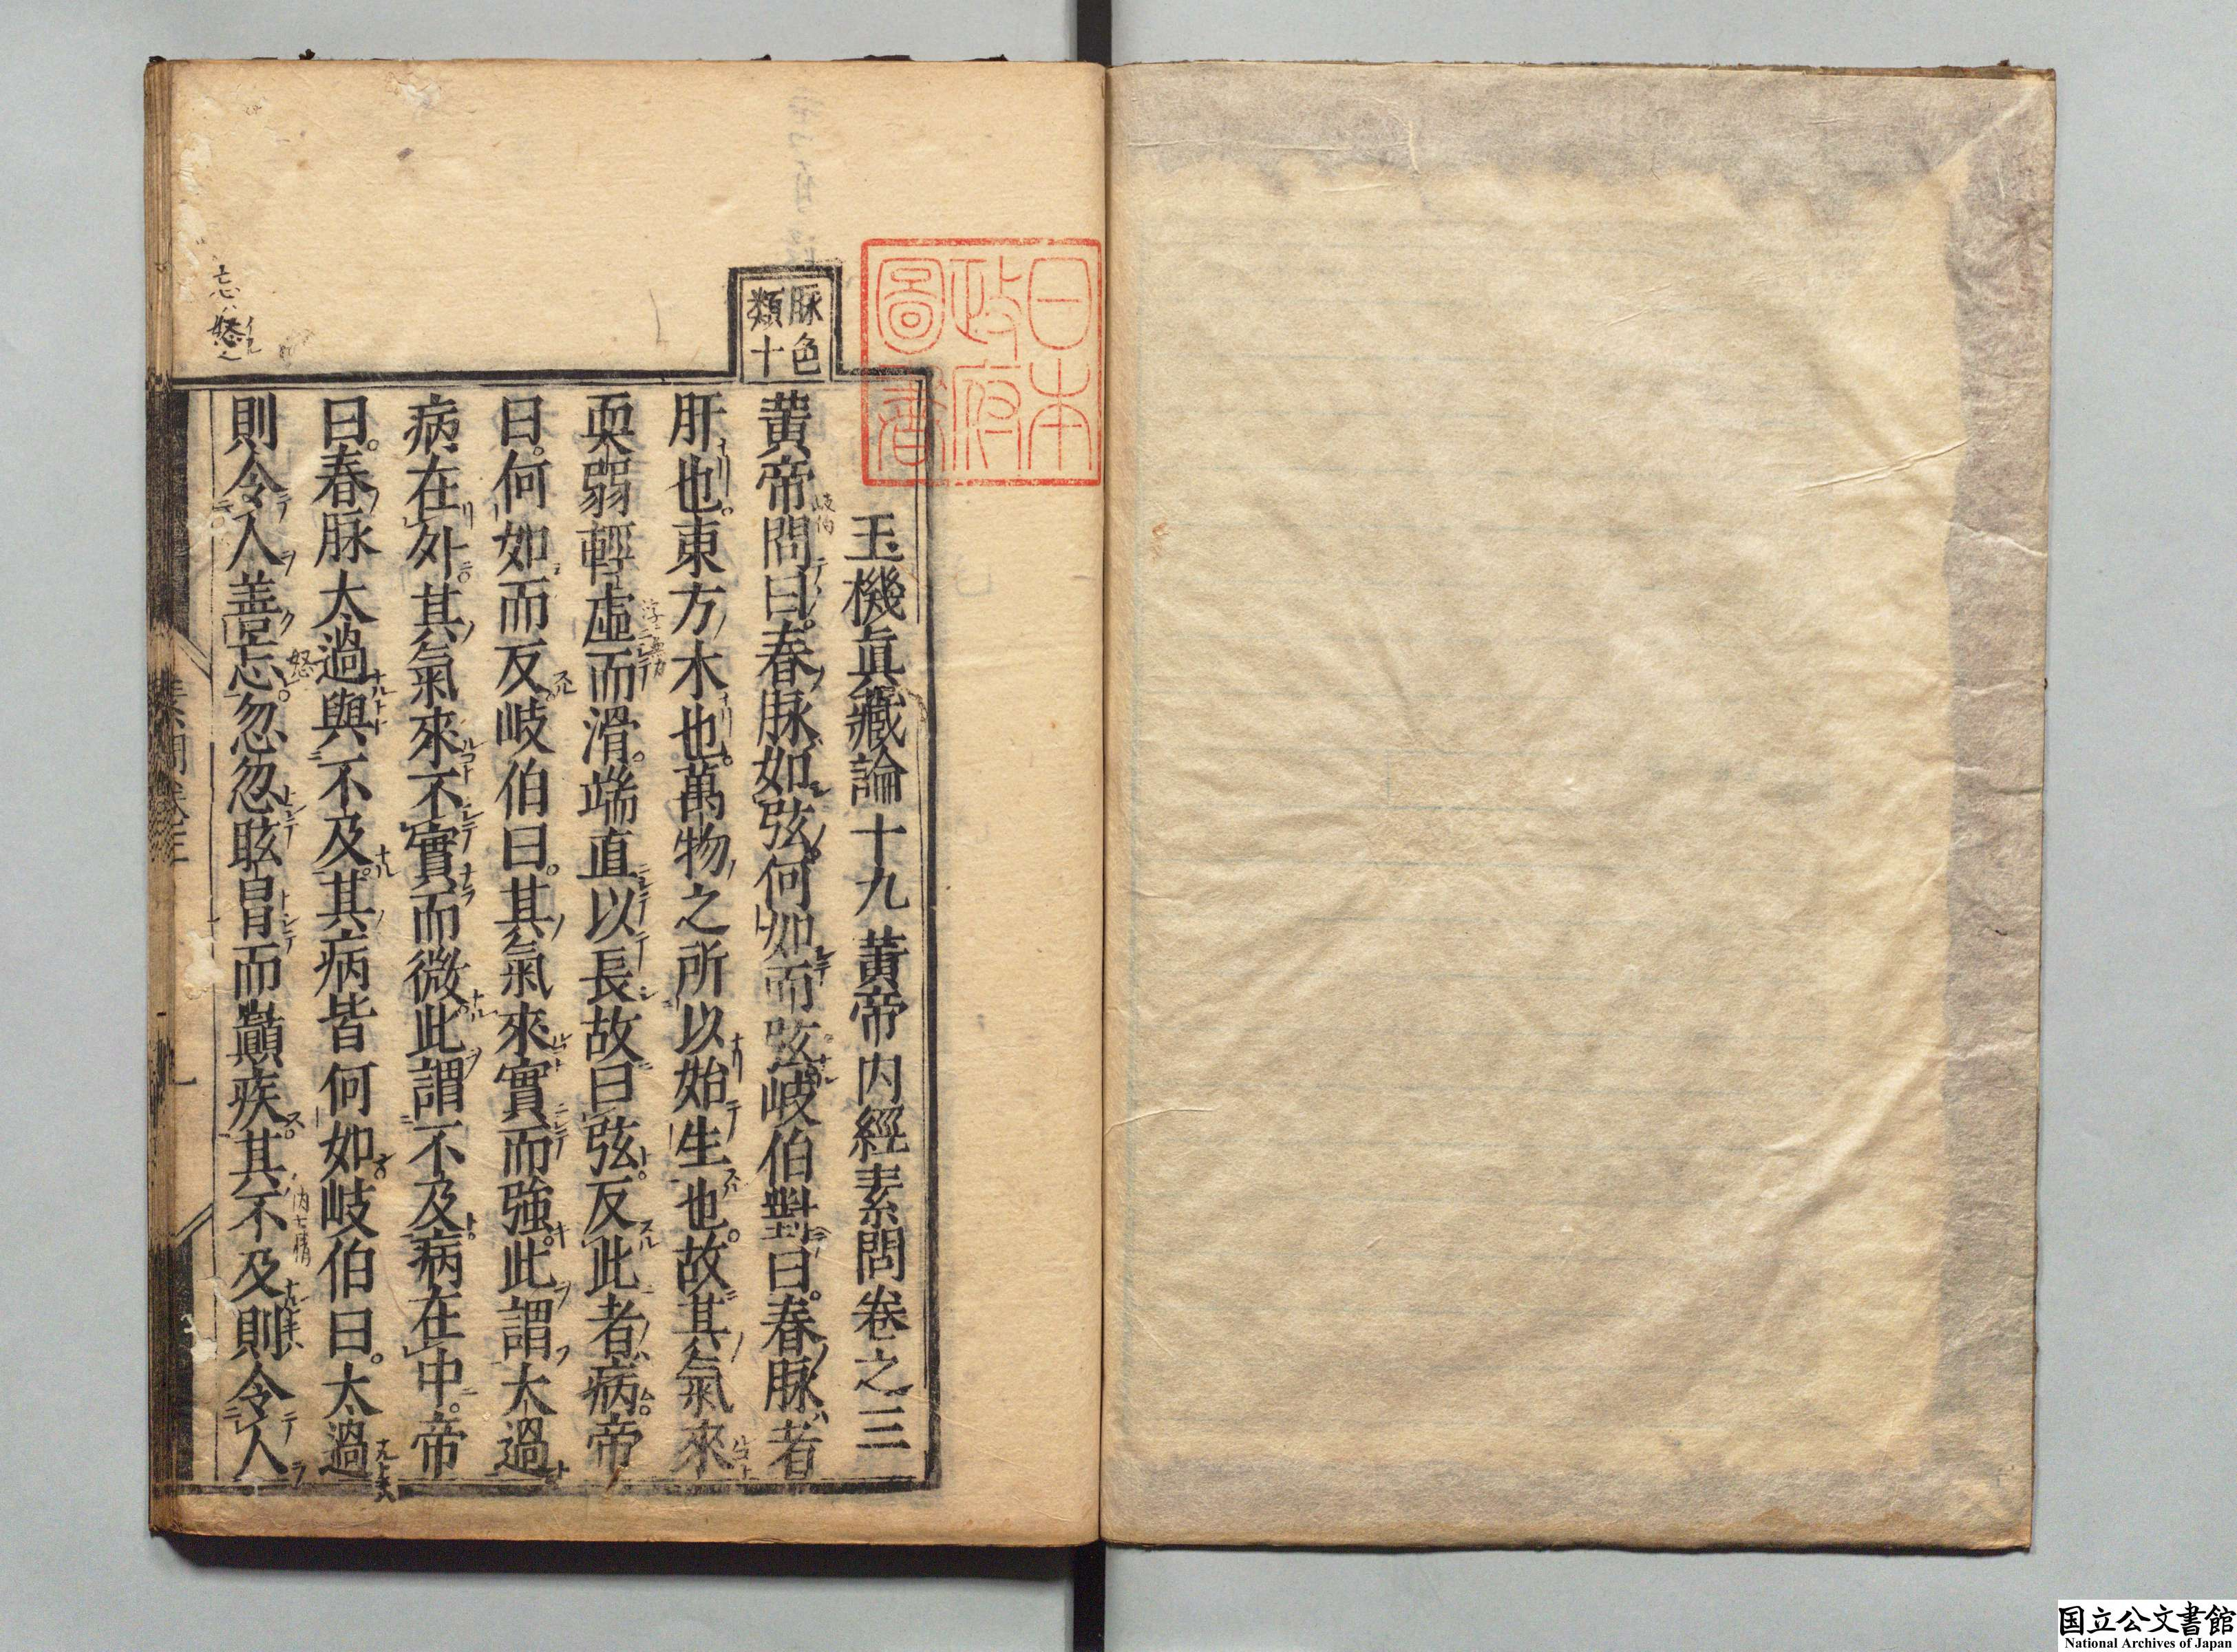 日本
政府
圖書
脉色
類十
玉機眞藏論十九 黃帝内經素問卷之三
黃帝問曰。春脉如弦。何如而弦。岐伯對曰。春脉者
肝也。東方木也。萬物之所以始生也。故其氣來
耎弱輕虛而滑。端直以長。故曰弦。反此者病。帝
曰。何如而反。岐伯曰。其氣來實而強。此謂太過
病在外。其氣來不實而微。此謂不及。病在中。帝
曰。春脉太過與不及。其病皆何如。岐伯曰。太過
則令人善忘。忽忽眩冒而巔疾。其不及則令人
岐伯
怒
内七情
忘ハ怒
素問卷三
一
国立公文書館
National Archives of Japan